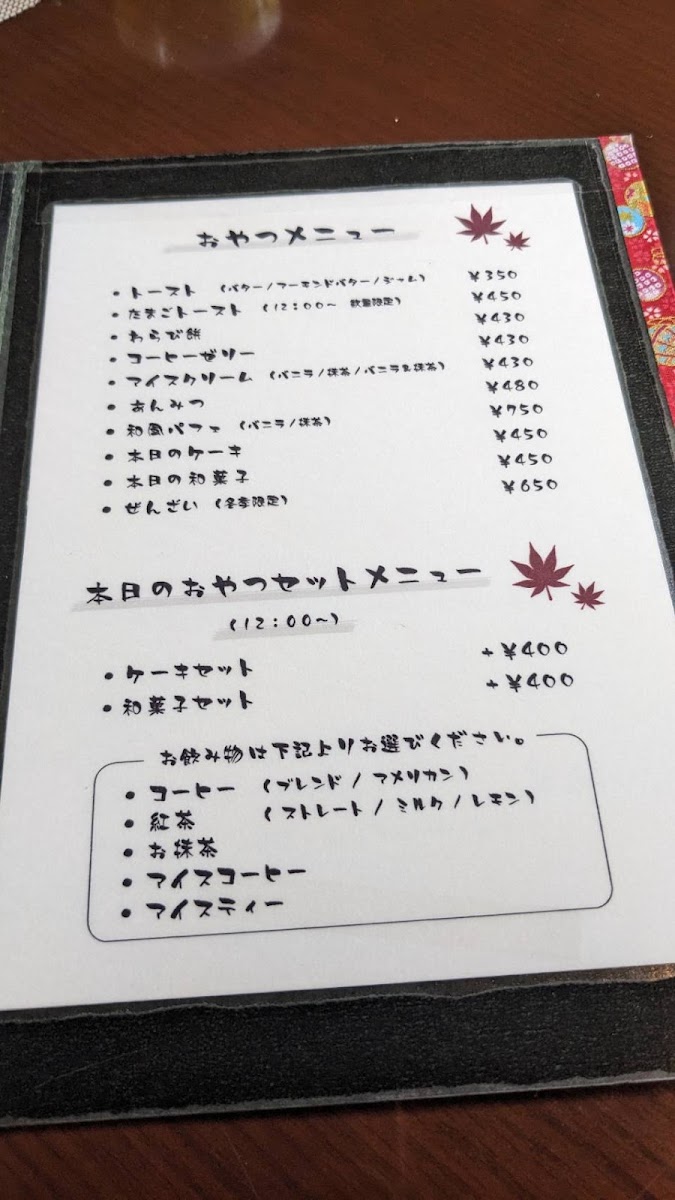 おやつメニュー
・トースト (バター/アーモンドバター/ジャム) ¥350
・たまごトースト (12:00~ 数量限定) ¥450
・わらび餅 ¥430
・コーヒーゼリー ¥430
・アイスクリーム (バニラ/抹茶/バニラ&抹茶) ¥430
・あんみつ ¥480
・和風パフェ (バニラ/抹茶) ¥750
・本日のケーキ ¥450
・本日の和菓子 ¥450
・ぜんざい (冬季限定) ¥650
本日のおやつセットメニュー
(12:00~)
・ケーキセット +¥400
・和菓子セット +¥400
お飲み物は下記よりお選びください。
・コーヒー (ブレンド/アメリカン)
・紅茶 (ストレート/ミルク/レモン)
・お抹茶
・アイスコーヒー
・アイスティー